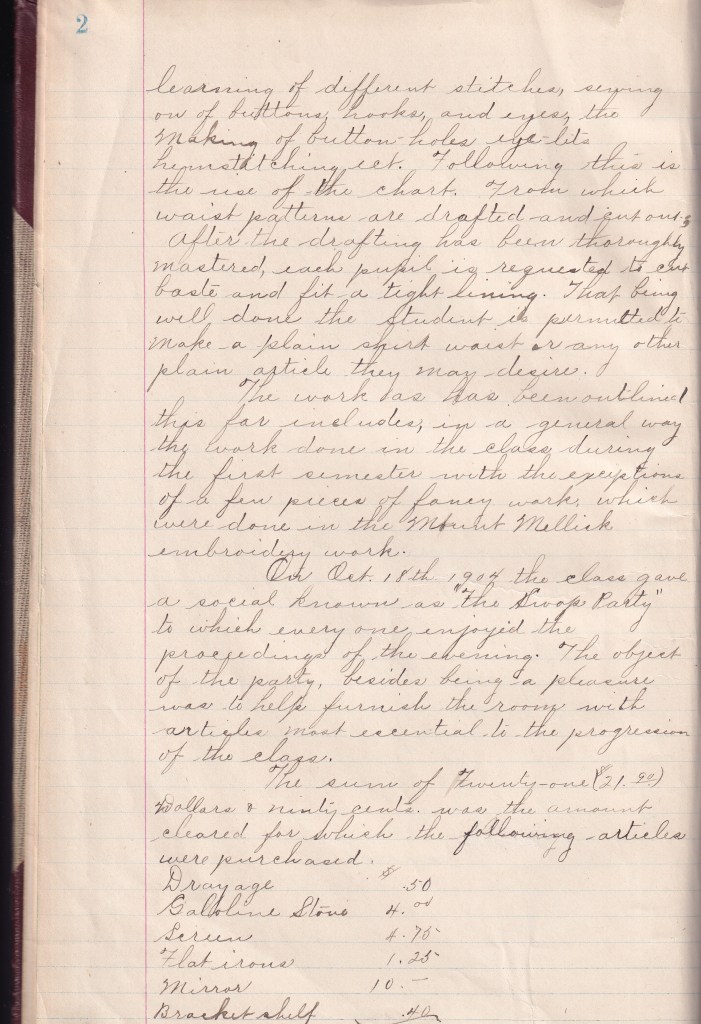 2
learning of different stitches, sewing
on of buttons, hooks, and eyes, the
Making of button-holes eye-lets
hemstitching ect. Following this is
the use of the chart. From which
waist patterns are drafted and cut out.
After the drafting has been thoroughly
mastered, each pupil is requested to cut
baste and fit a tight lining. That being
well done the student is permitted to
make a plain shirt waist or any other
plain article they may desire.
The work as has been outlined
this far includes, in a general way
the work done in the class during
the first semester with the exceptions
of a few pieces of fancy work, which
were done in the Mount Mellick
embroidery work.
On Oct. 18th 1904 the class gave
a social known as "The Swop Party"
to which every one enjoyed the
proceedings of the evening. The object
of the party, besides being a pleasure
was to help furnish the room with
articles most essential to the progression
of the class.
The sum of Twenty-one ($21.90)
Dollars & ninty cents. was the amount
cleared for which the following articles
were purchased.
Drayage $ .50
Gasoline Stove 4.00
Screen 4.75
Flat irons 1.25
Mirror 10.—
Bracket shelf .40